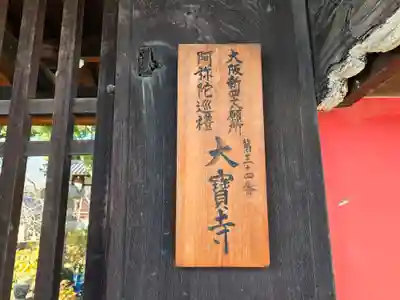 大阪新四十八願所
第三十四番
阿弥陀巡禮
大寳寺